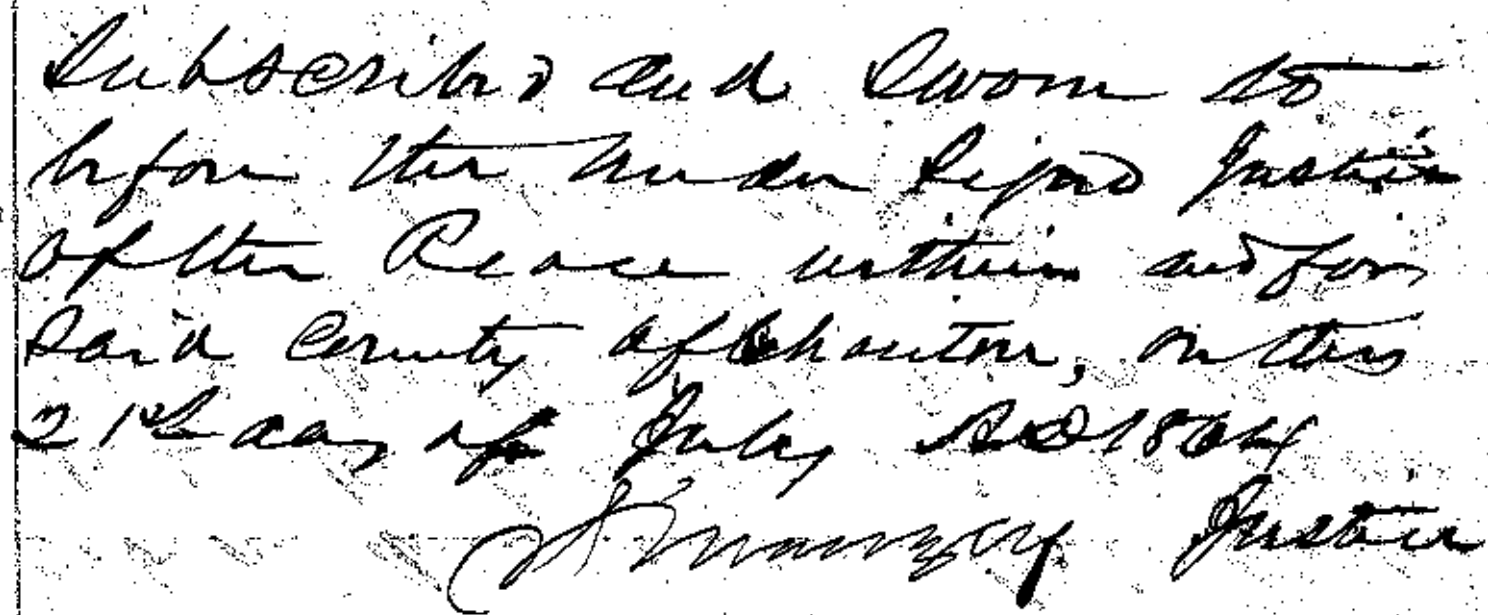 Subscribed and Sworn to
before the under Signd Justice
of the Peace within and for
Said County of Chariton, on this
21st day of July AD 1864
Justice